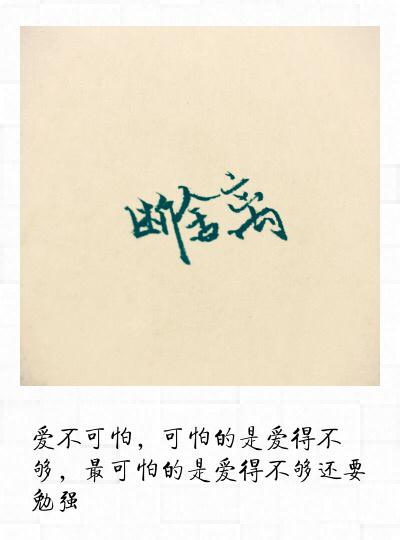 断舍离
爱不可怕，可怕的是爱得不
够，最可怕的是爱得不够还要
勉强